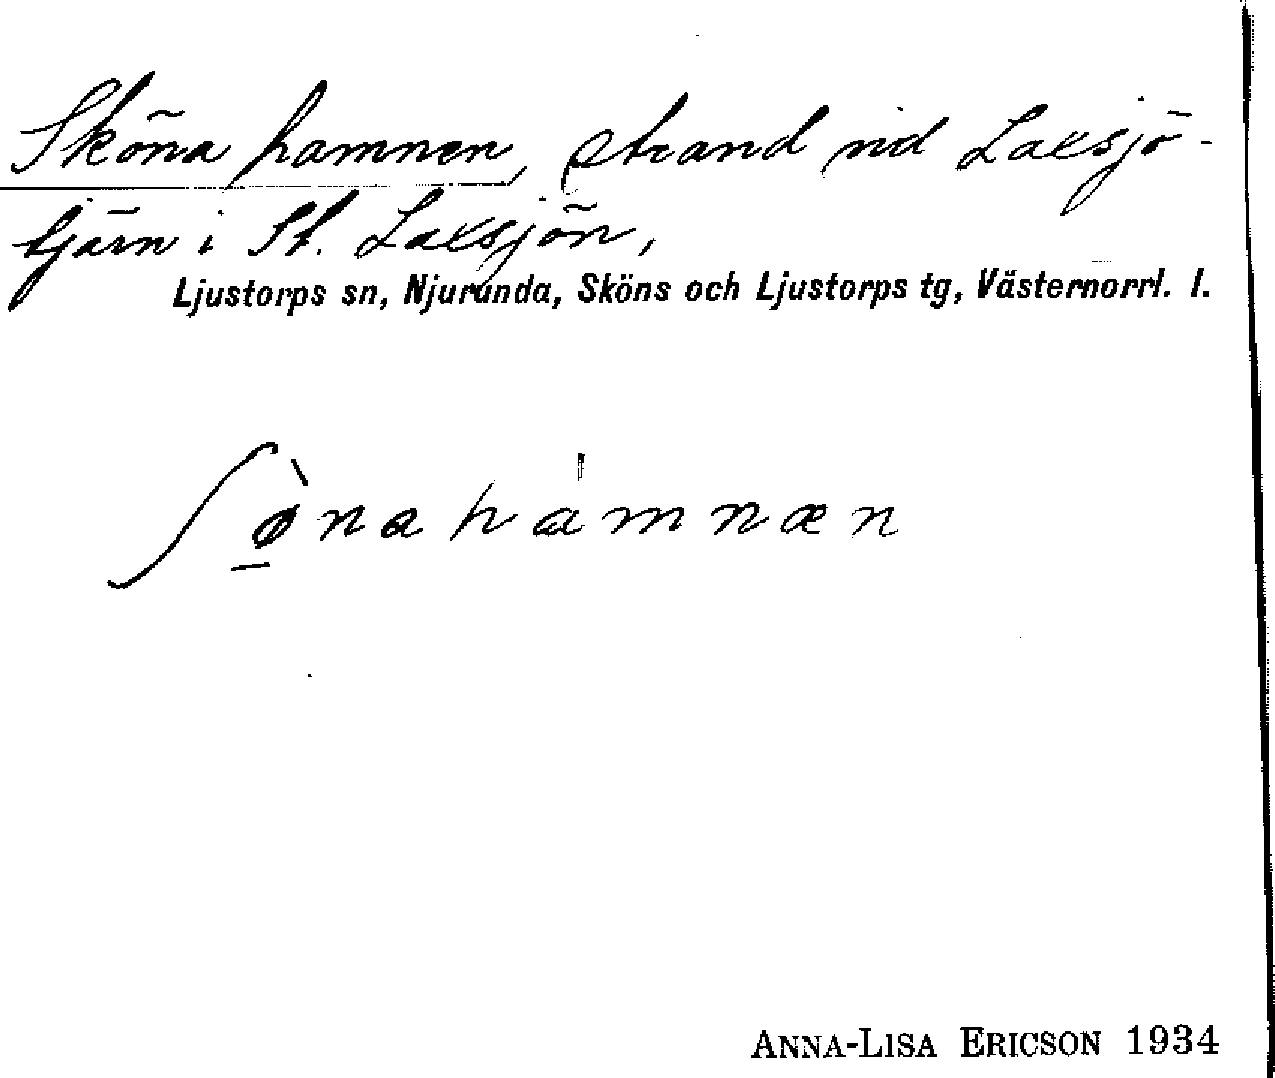 Sköna hamnen, strand vid Laxsjö-
tjärn i St. Laxsjön,
Ljustorps sn, Njurunda, Sköns och Ljustorps tg, Västernorrl. l.
ʃø̀nahàmnæn
ANNA-LISA ERICSON 1934